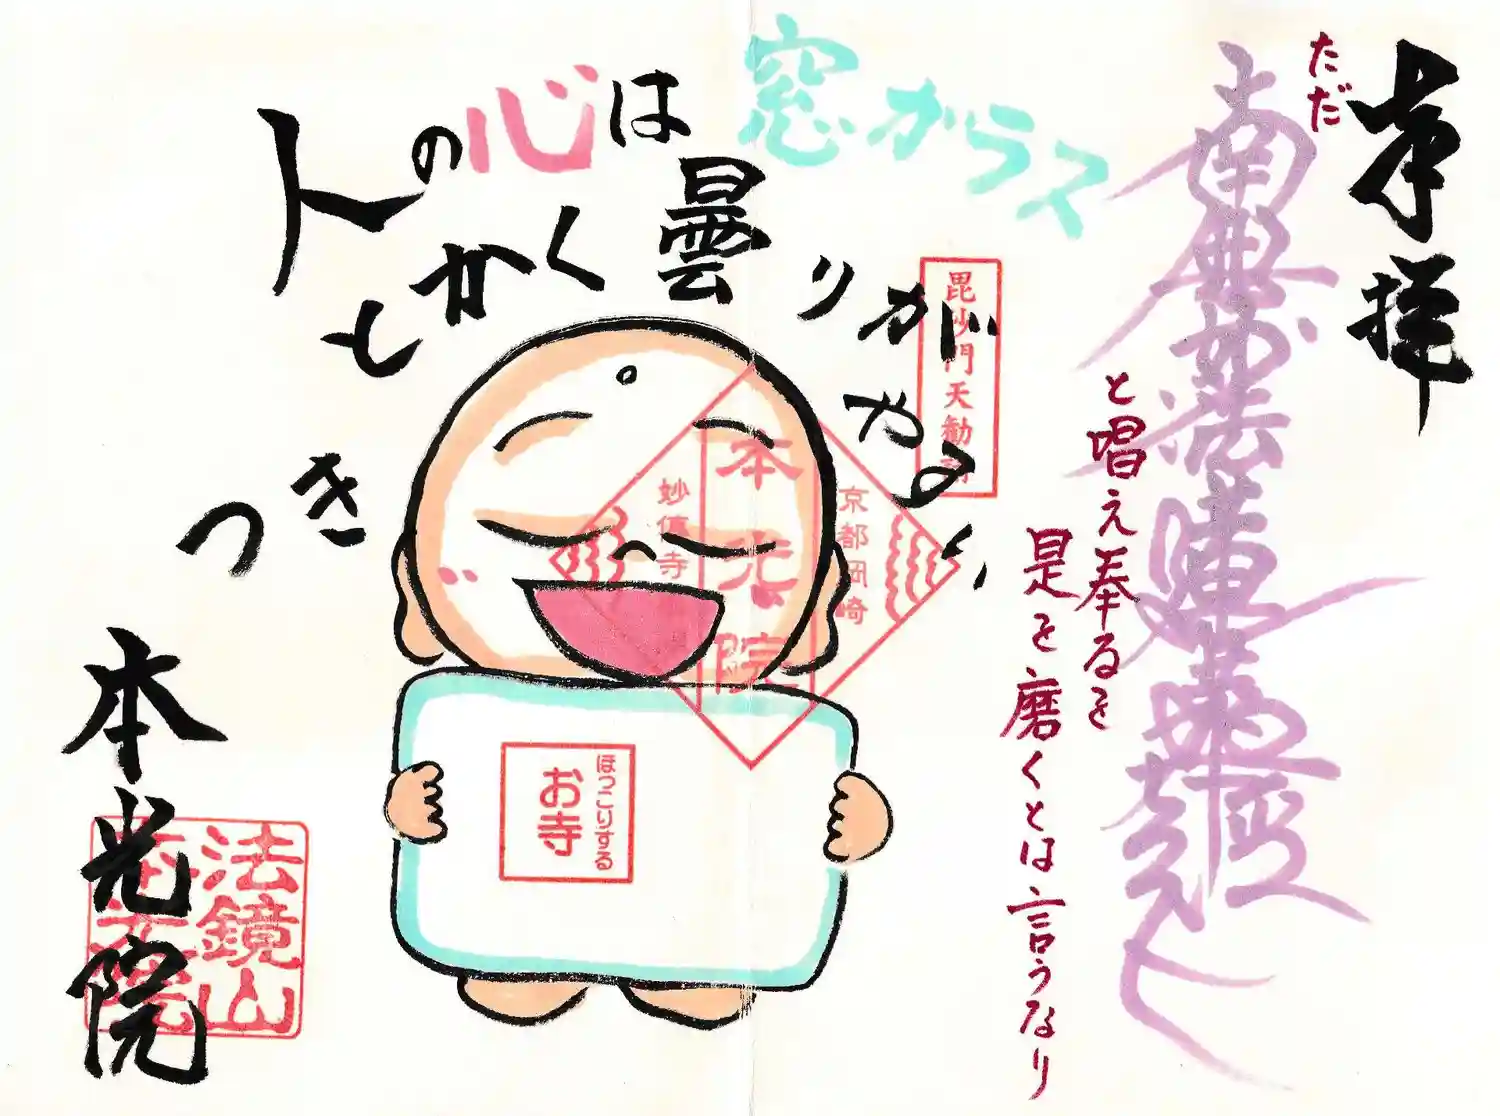 奉拝
ただ
南無妙法蓮華経
と唱え奉るを
是を磨くとは言うなり
人の心は窓ガラス
とかく曇りが
つきやすい
毘沙門天勧請
京都岡崎
本光院
妙傳寺
ほっこりする
お寺
本光院
法鏡山
本光院